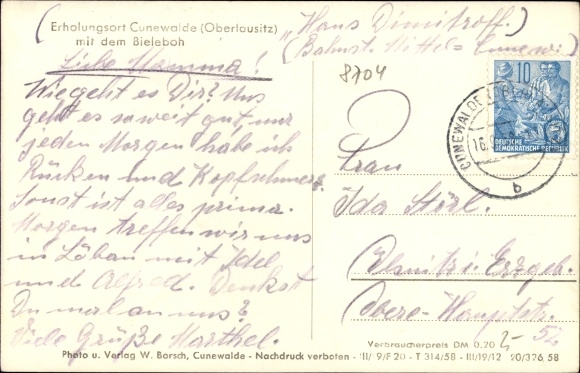 Erholungsort Cunewalde (Oberlausitz)
mit dem Bieleboh
"Haus Dimitroff."
(Bahnst. Mittel=Cunew.)
8704
Liebe Mamma!
Wie geht es Dir? Uns
geht es soweit gut, nur
jeden Morgen habe ich
Rücken und Kopfschmerz.
Sonst ist alles prima.
Morgen treffen wir uns
in Löbau mit
und Alfred. Denkst
Du mal an uns?
Viele Grüße Marthel.
10
DEUTSCHE
DEMOKRATISCHE REPUBLIK
CUNEWALDE
16.
b
Frau
Ida Störl.
Oelsnitz i. Erzgeb.
Obere-Hauptstr.
52
Verbraucherpreis DM 0.20
Photo u. Verlag W. Borsch, Cunewalde - Nachdruck verboten - III/9/F 20 - T 314/58 - III/19/12 20/326 58